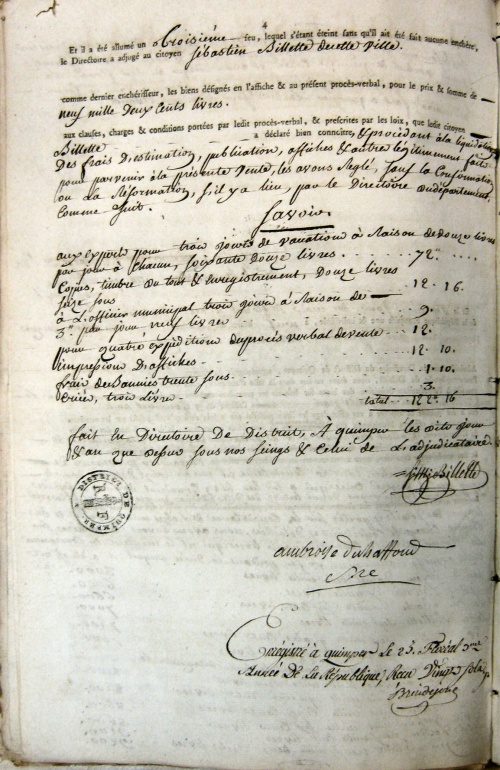 4
Et il a été allumé un troisième feu, lequel s'étant éteint sans qu'il ait été fait aucune enchère,
le Directoire a adjugé au citoyen Sébastien Billette de cette ville.
comme dernier enchérisseur, les biens désignés en l'affiche & au présent procès-verbal, pour le prix & somme de
neuf mille deux cents livres.
aux clauses, charges & conditions portées par ledit procès-verbal, & prescrites par les loix, que ledit citoyen
Billette a déclaré bien connoître, & procédant à la liquidation
Des frais D'estimation, publication, affiches & autre légitimement faits
pour parvenir à la présente vente, les avons Réglé, sauf la Confirmation
ou la Réformation, s'il y a lieu, par le Directoire du département,
Comme suit.
Savoir.
aux experts pour trois jours de vacation à Raison de Douze livres
par jour à chacun, soixante Douze livres . . . 72 "
Copies, timbre du tout & enregistrement, Douze livres
seize sous . . . 12 . 16 .
à L'officier municipal trois jours à Raison de
3 " par jour neuf livres . . . 9 .
pour quatre expéditions du procès verbal de vente . . . 12 .
impression D'affiches . . . 12 . 10 .
frais de Bannies trente sous . . . 1 . 10 .
Criée, trois Livre . . . 3 .
total . . . 122 . 16
fait En Directoire De District, à quimper les dits jour
& an que dessus sous nos seings & Celui de L'adjudicataire
Billette
DISTRICT DE QUIMPER
ambroise duhaffond
Enregistré à quimper le 25 Floréal 3me
Année De La République, Recu Vingt sols